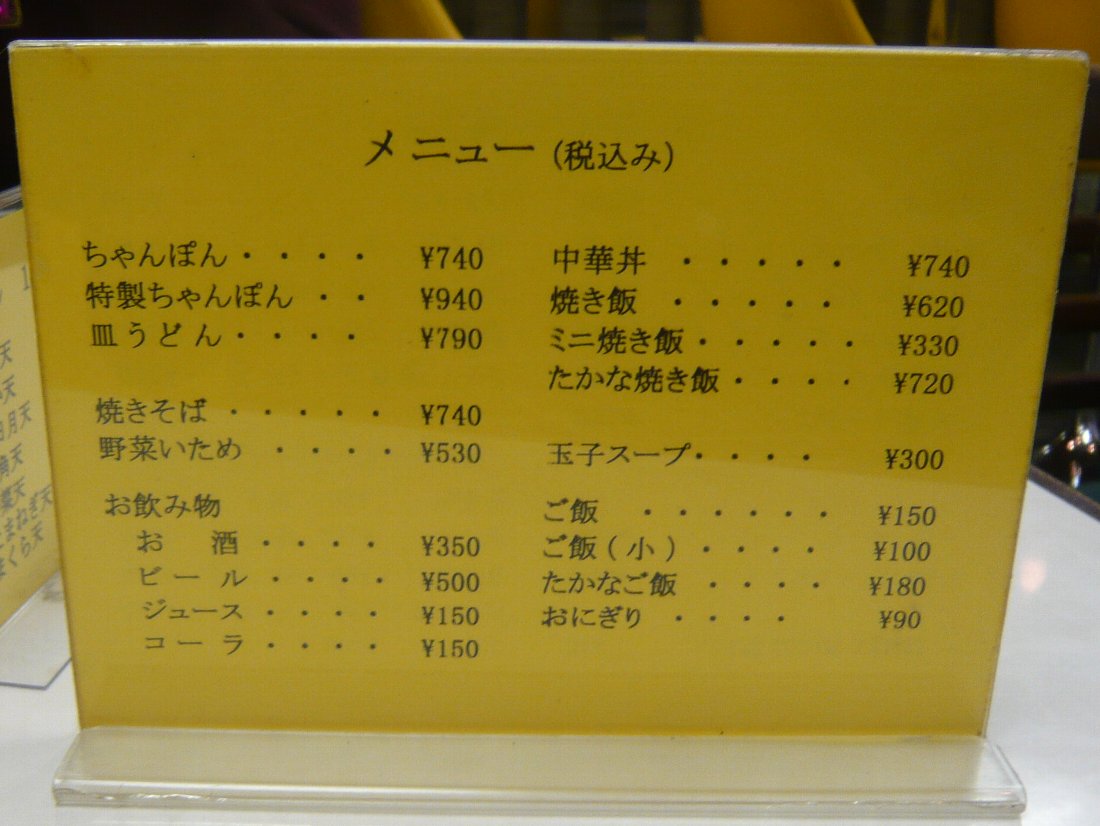 メニュー(税込み)
ちゃんぽん・・・・ ¥740
特製ちゃんぽん ・・ ¥940
皿うどん・・・・ ¥790
焼きそば ・・・・・ ¥740
野菜いため ・・・・ ¥530
お飲み物
お 酒・・・・ ¥350
ビール・・・・ ¥500
ジュース・・・・ ¥150
コーラ・・・・ ¥150
中華丼 ・・・・・ ¥740
焼き飯 ・・・・・ ¥620
ミニ焼き飯・・・・・ ¥330
たかな焼き飯・・・・ ¥720
玉子スープ・・・・ ¥300
ご飯 ・・・・・・ ¥150
ご飯(小)・・・・ ¥100
たかなご飯 ・・・・ ¥180
おにぎり ・・・・ ¥90